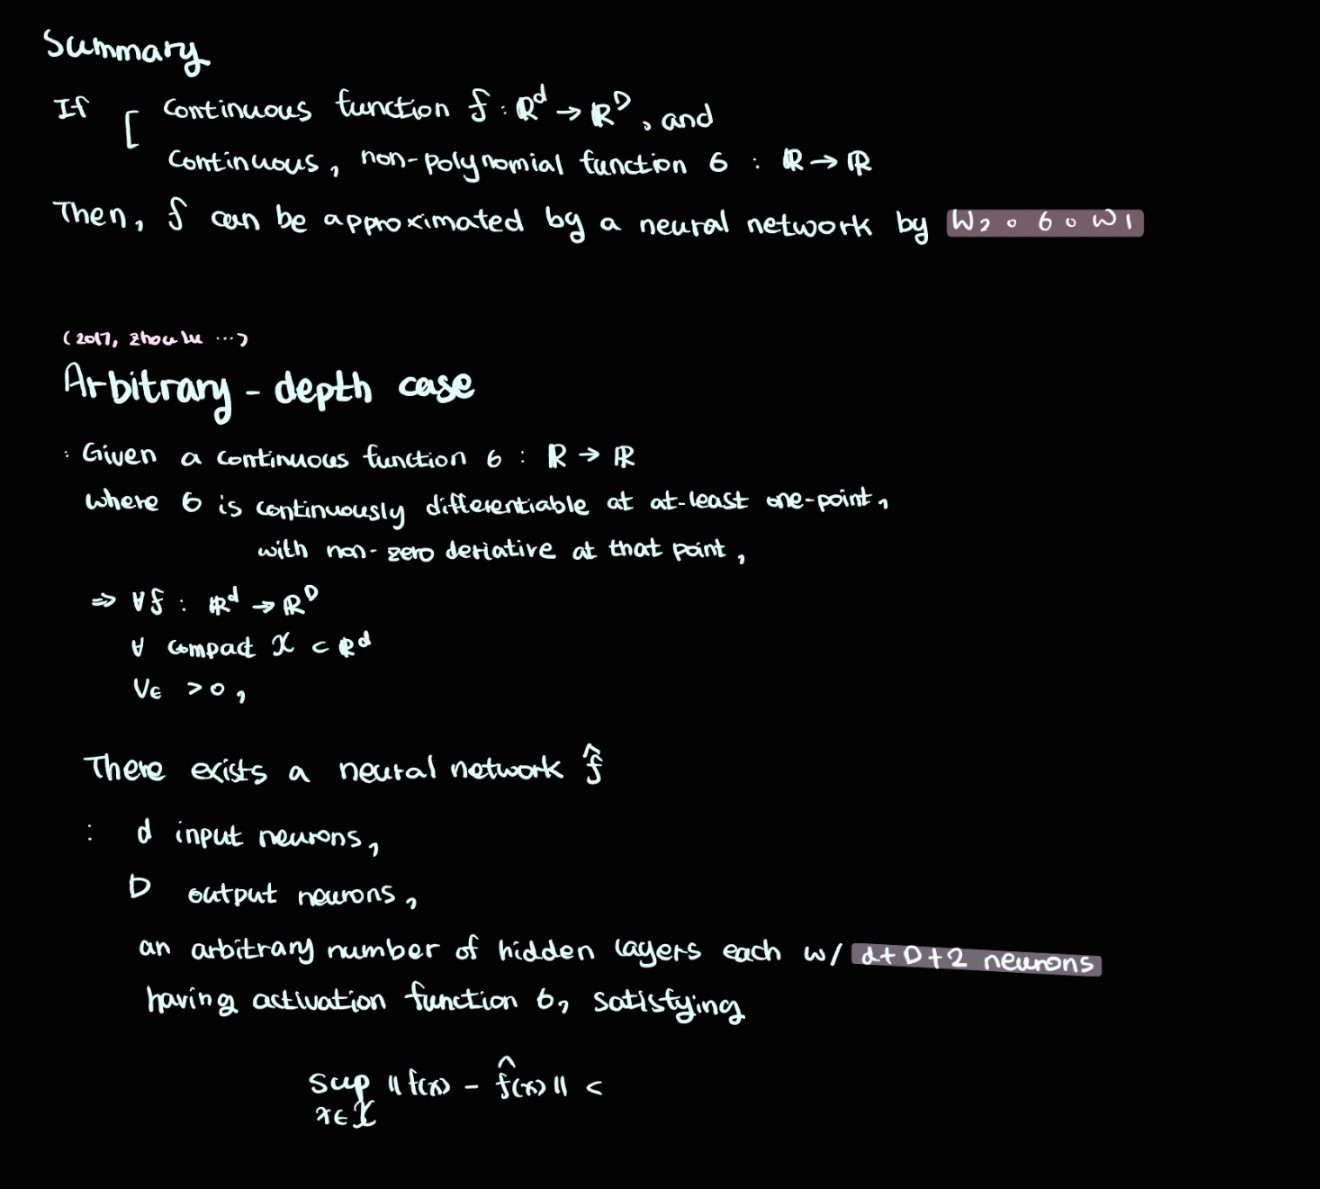 Summary
If [ continuous function f : ℝᵈ → ℝᴰ, and
continuous, non-polynomial function σ : ℝ → ℝ
Then, f can be approximated by a neural network by W₂ ∘ σ ∘ W₁
(2017, Zhou Lu ...)
Arbitrary - depth case
: Given a continuous function σ : ℝ → ℝ
where σ is continuously differentiable at at-least one-point,
with non-zero deriative at that point,
⇒ ∀f : ℝᵈ → ℝᴰ
∀ compact 𝒳 ⊂ ℝᵈ
∀ε > 0,
There exists a neural network f̂
: d input neurons,
D output neurons,
an arbitrary number of hidden layers each w/ d+D+2 neurons
having activation function σ, satisfying
sup ‖f(x) - f̂(x)‖ <
x∈𝒳